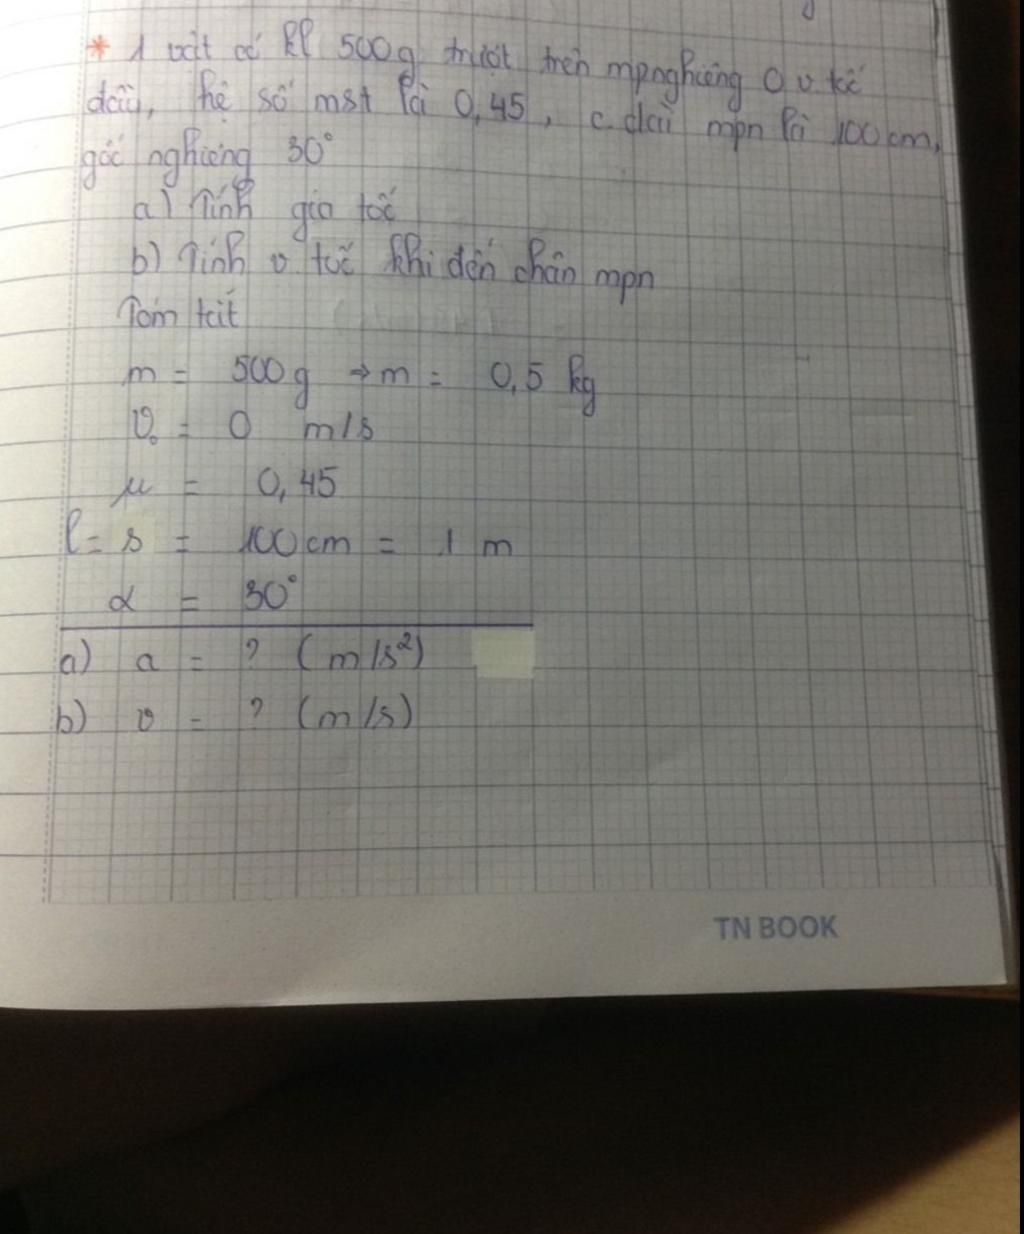 * 1 vật có kl 500g trượt trên mpnghiêng 0 v tốc
đầu, hệ số mst là 0,45, c.dài mpn là 100cm,
góc nghiêng 30°
a) Tính gia tốc
b) Tính v tốc khi đến chân mpn
Tóm tắt
m = 500g ⇒ m = 0,5 kg
v₀ = 0 m/s
μ = 0,45
l = s = 100cm = 1 m
α = 30°
a) a = ? (m/s²)
b) v = ? (m/s)
TN BOOK